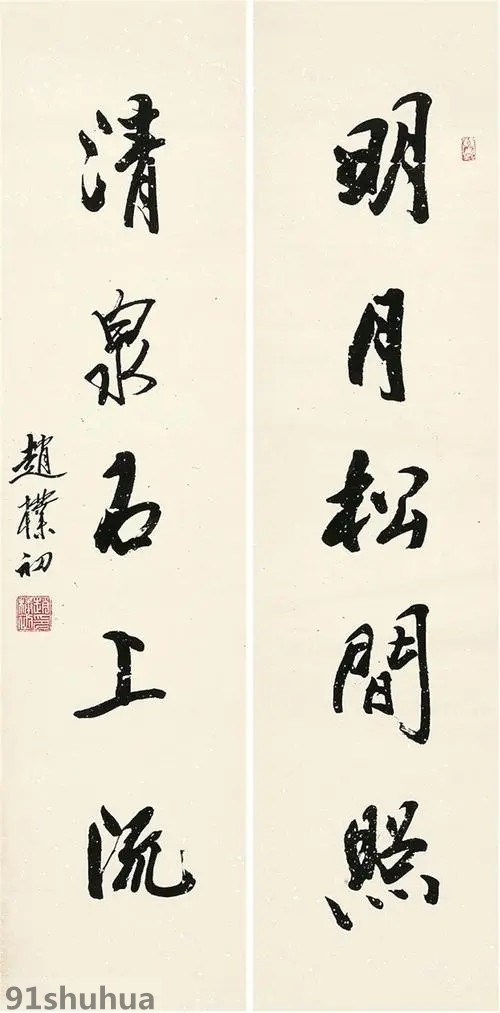 明月松間照
清泉石上流
趙樸初
91shuhua